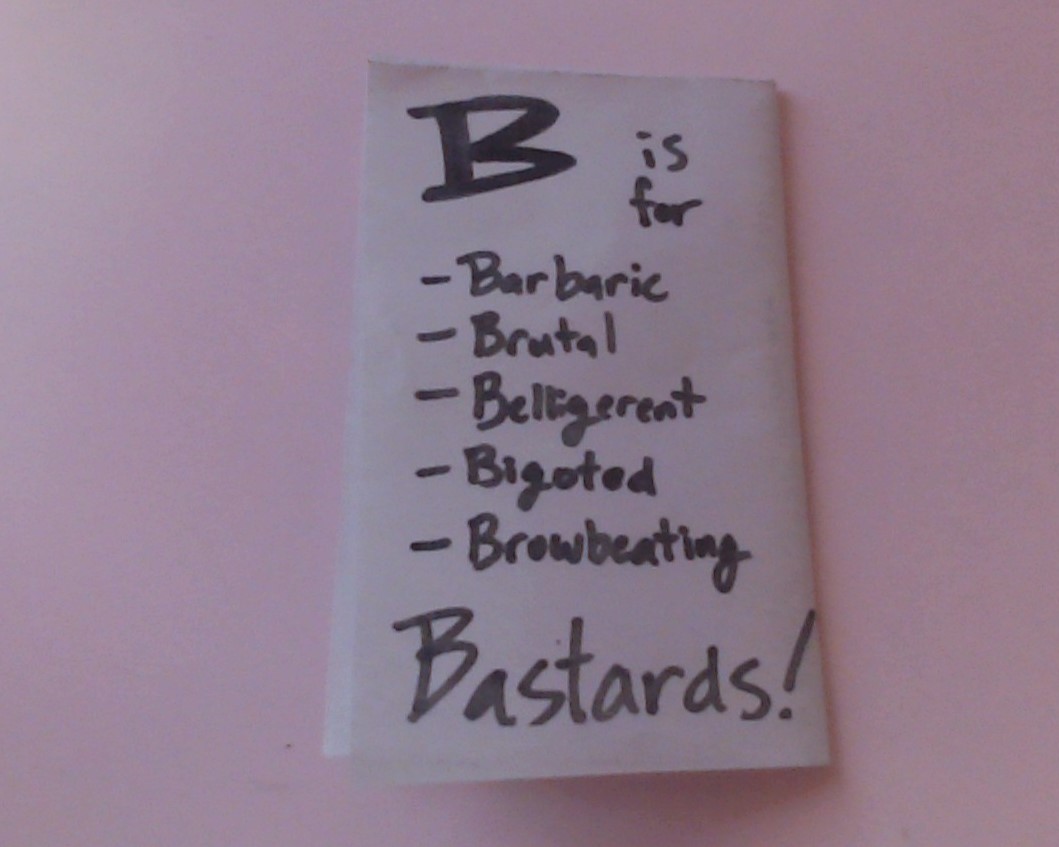 B is
for
- Barbaric
- Brutal
- Belligerent
- Bigoted
- Browbeating
Bastards!